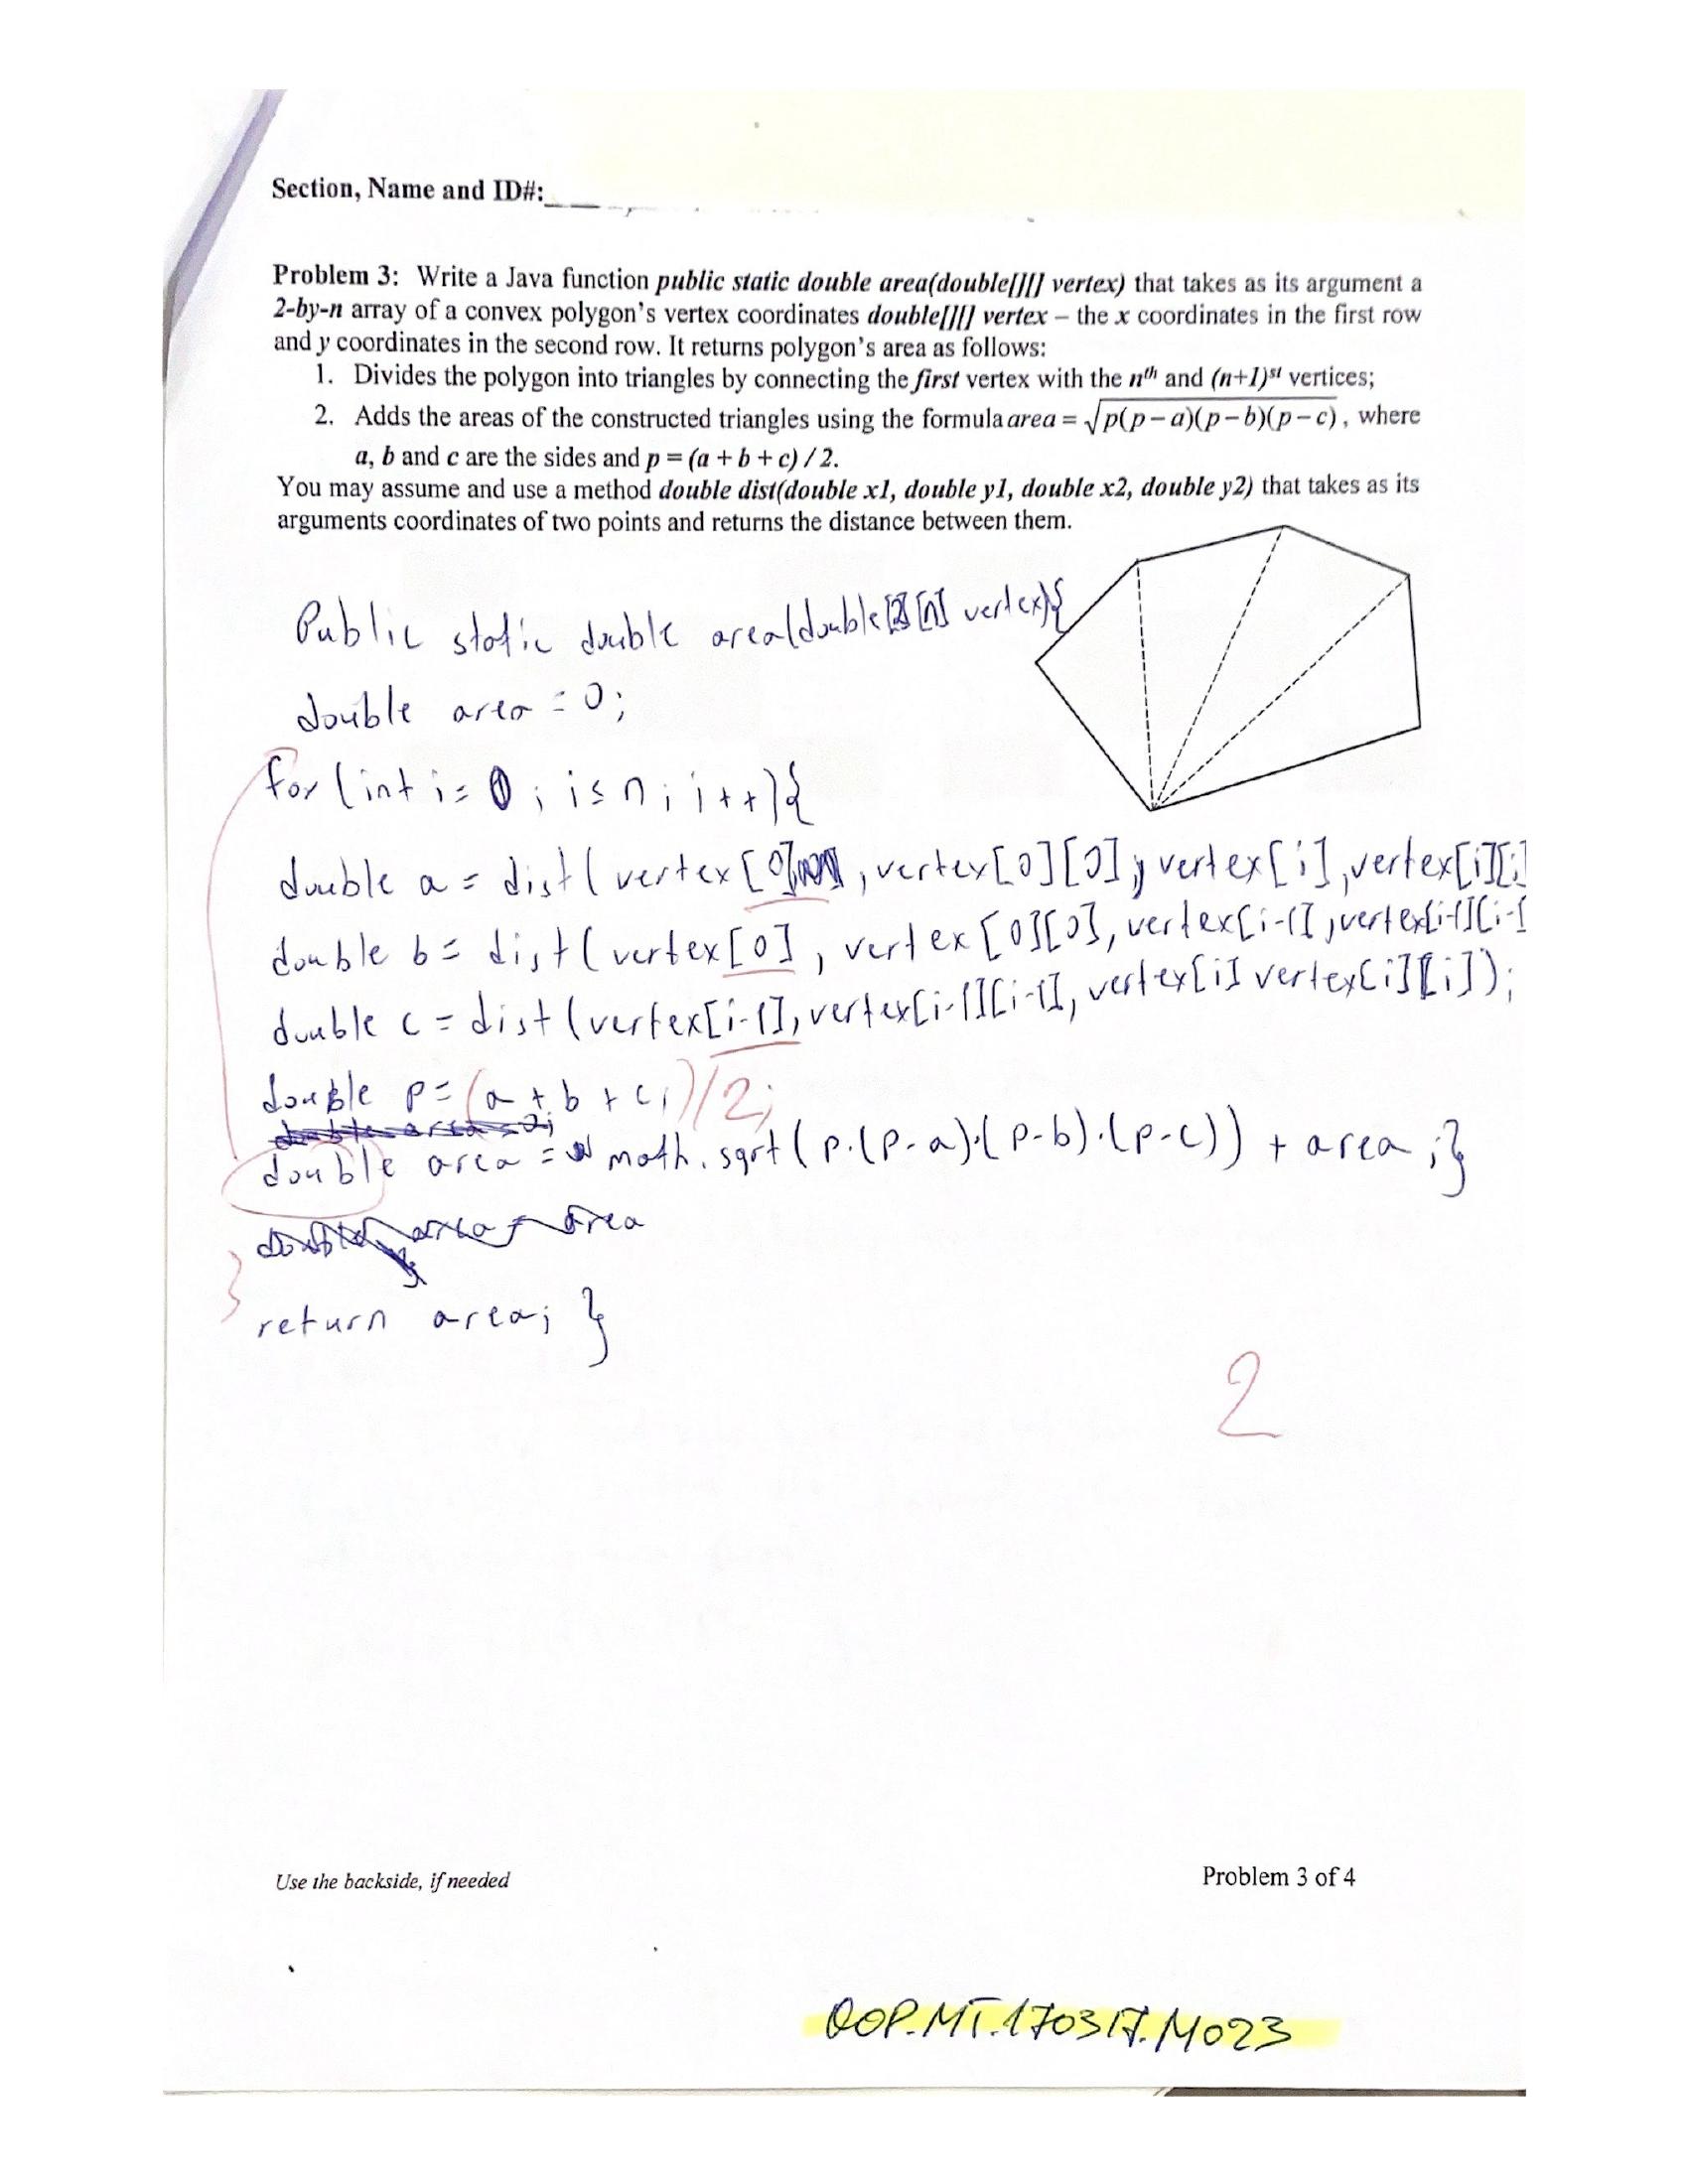 Section, Name and ID#:
Problem 3: Write a Java function public static double area(double[][] vertex) that takes as its argument a
2-by-n array of a convex polygon's vertex coordinates double[][] vertex – the x coordinates in the first row
and y coordinates in the second row. It returns polygon's area as follows:
1. Divides the polygon into triangles by connecting the first vertex with the nth and (n+1)st vertices;
2. Adds the areas of the constructed triangles using the formula area = √p(p−a)(p−b)(p−c), where
a, b and c are the sides and p = (a + b + c) / 2.
You may assume and use a method double dist(double x1, double y1, double x2, double y2) that takes as its
arguments coordinates of two points and returns the distance between them.
Public static double area(double[2][n] vertex){
double area = 0;
for (int i = 0; i ≤ n; i++){
double a = dist( vertex[0], vertex[0][0], vertex[i], vertex[i][i]
double b = dist( vertex[0], vertex[0][0], vertex[i-1], vertex[i-1][i-1
double c = dist (vertex[i-1], vertex[i-1][i-1], vertex[i] vertex[i][i]);
double p = (a + b + c;)/2;
double area = math.sqrt( p·(p-a)·(p-b)·(p-c)) + area ;}
}
return area; }
2
Use the backside, if needed
Problem 3 of 4
OOP.MT.170317.M023